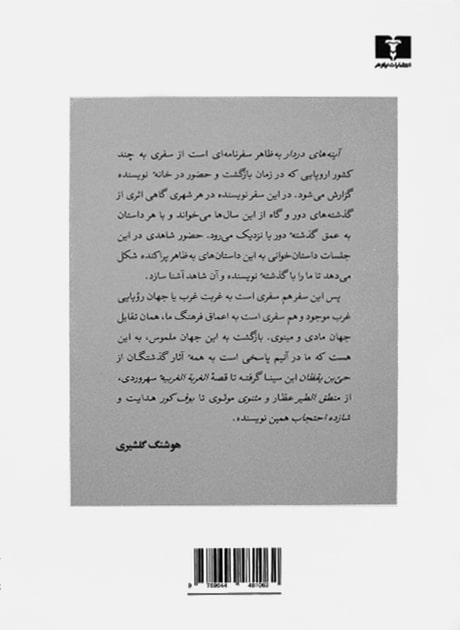 انتشارات نیلوفر
آینه‌های دردار به‌ظاهر سفرنامه‌ای است از سفری به چند
کشور اروپایی که در زمان بازگشت و حضور در خانهٔ نویسنده
گزارش می‌شود. در این سفر نویسنده در هر شهری گاهی اثری از
گذشته‌های دور و گاه از این سال‌ها می‌خواند و با هر داستان
به عمق گذشتهٔ دور یا نزدیک می‌رود. حضور شاهدی در این
جلسات داستان‌خوانی به این داستان‌های به‌ظاهر پراکنده شکل
می‌دهد تا ما را با گذشتهٔ نویسنده و آن شاهد آشنا سازد.
پس این سفر هم سفری است به غربت غرب یا جهان رؤیایی
غرب موجود و هم سفری است به اعماق فرهنگ ما، همان تقابل
جهان مادی و مینوی. بازگشت به این جهان ملموس، به این
هست که ما در آنیم پاسخی است به همهٔ آثار گذشتگان از
حیّ‌بن یقظان ابن سینا گرفته تا قصهٔ الغربة الغربیهٔ سهروردی،
از منطق الطیر عطار و مثنوی مولوی تا بوف کور هدایت و
شازده احتجاب همین نویسنده.
هوشنگ گلشیری